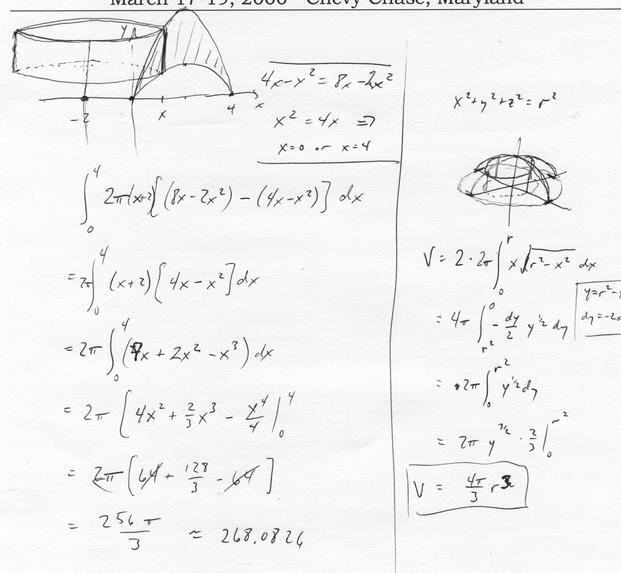 March 17-19, 2006 Chevy Chase, Maryland
y
-2 x 4 x
4x-x² = 8x-2x²
x² = 4x ⇒
x=0 or x=4
∫₀⁴ 2π(x+2)[(8x-2x²) - (4x-x²)] dx
= 2π∫₀⁴ (x+2)[4x-x²]dx
= 2π ∫₀⁴ (8x + 2x² - x³) dx
= 2π [4x² + 2/3 x³ - x⁴/4 |₀⁴
= 2π [64 + 128/3 - 64]
= 256π/3 ≈ 268.0826
x²+y²+z² = r²
V = 2·2π ∫₀ʳ x √(r²-x²) dx
y=r²-
dy=-2x
= 4π ∫_{r²}^0 -dy/2 y^{1/2} dy
= 2π ∫₀^{r²} y^{1/2} dy
= 2π y^{3/2} · 2/3 |₀^{r²}
V = 4π/3 r³